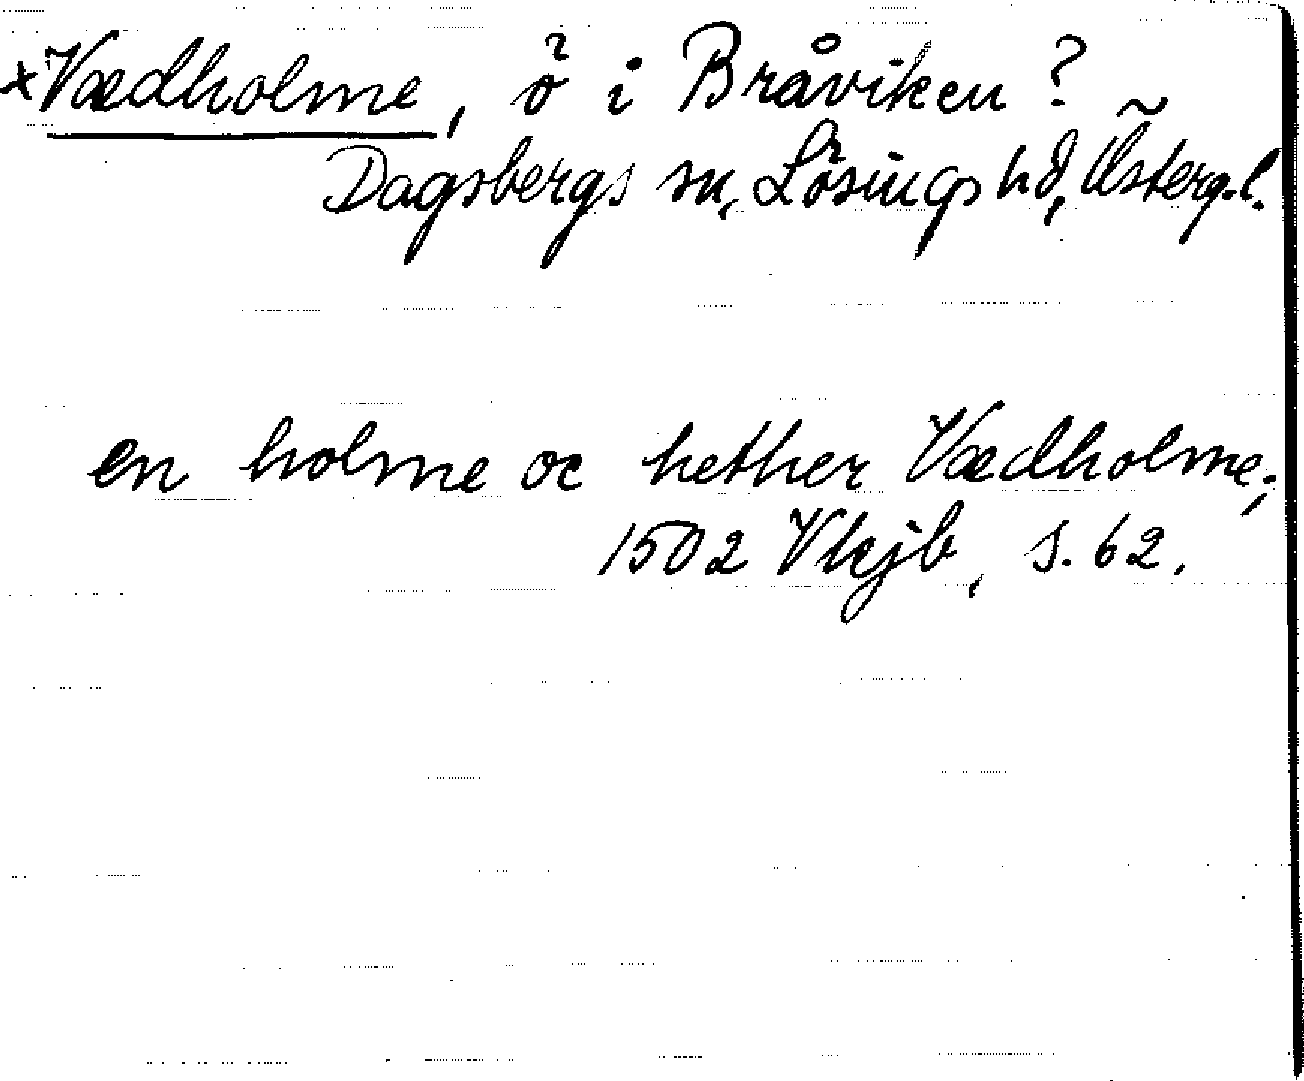 ×Vædholme, ö i Bråviken?
Dagsbergs sn, Lösings hd, Östergl.
en holme oc hether Vædholme;
1502 Vkjb, s. 62.